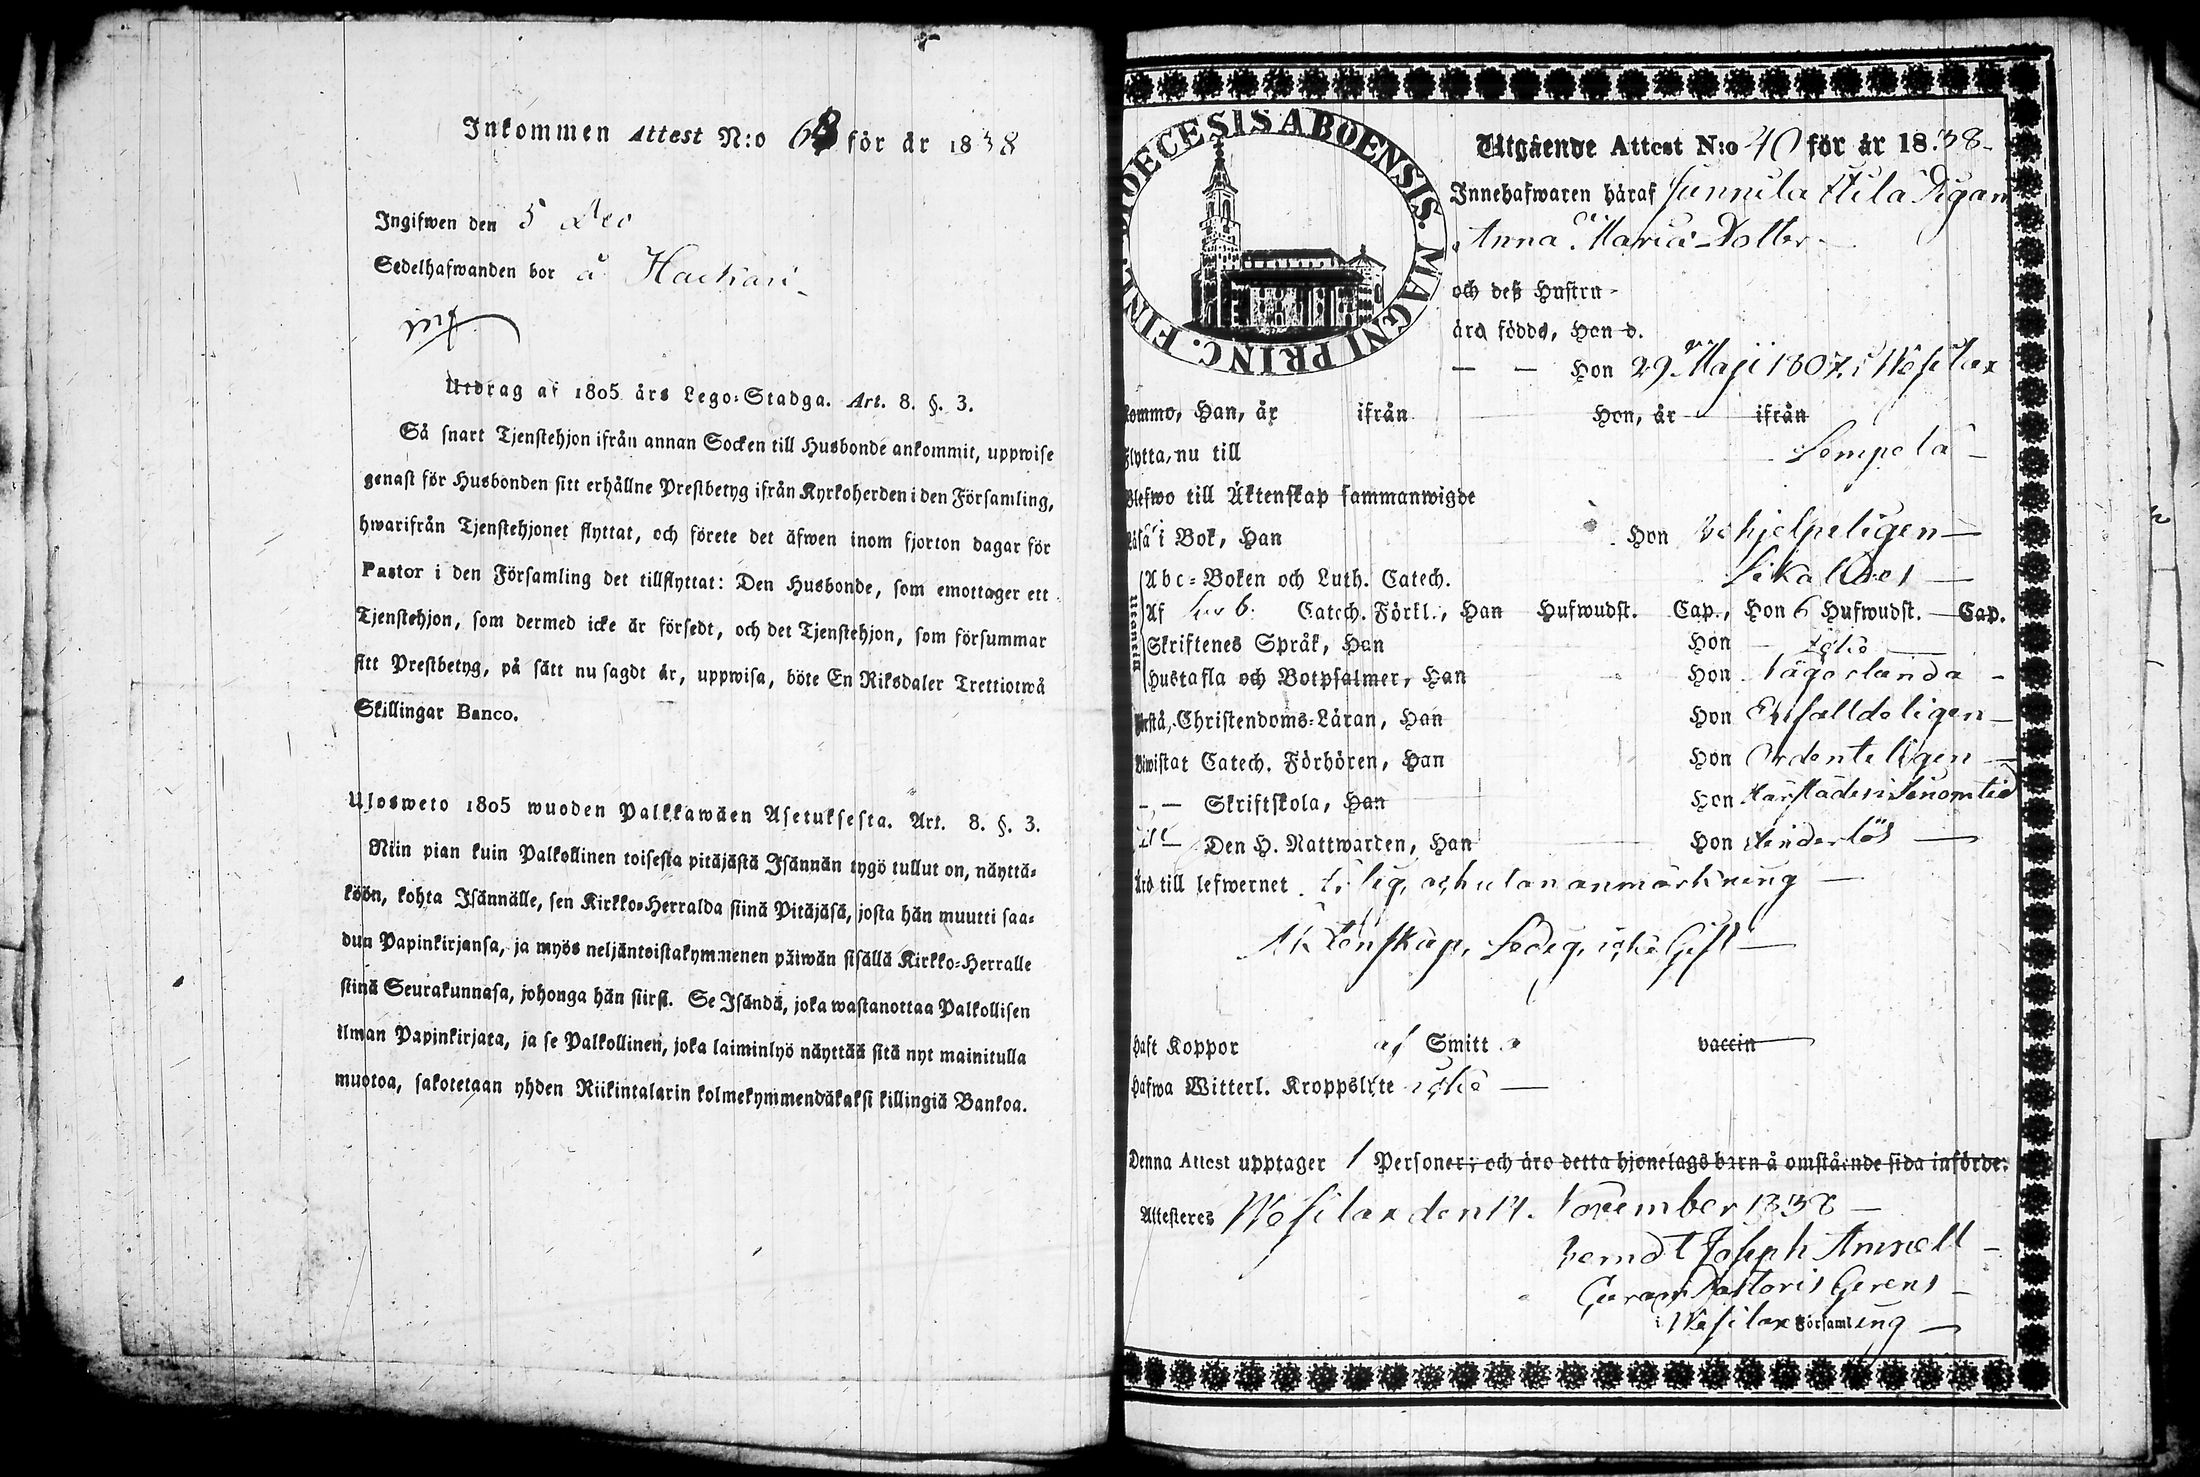 Inkommen Attest N:o 68 för år 1838
Ingifwen den 5 Dec
Sedelhafwanden bor å Hackari
Utdrag af 1805 års Lego-Stadga. Art. 8. §. 3.
Så snart Tjenstehjon ifrån annan Socken till Husbonde ankommit, uppwise
genast för Husbonden sitt erhållne Prestbetyg ifrån Kyrkoherden i den Församling,
hwarifrån Tjenstehjonet flyttat, och förete det äfwen inom fjorton dagar för
Pastor i den Församling det tillflyttat: Den Husbonde, som emottager ett
Tjenstehjon, som dermed icke är försedt, och det Tjenstehjon, som försummar
sitt Prestbetyg, på sätt nu sagdt är, uppwisa, böte En Riksdaler Trettiotwå
Skillingar Banco.
Ulosweto 1805 wuoden Palkkawäen Asetuksesta. Art. 8. §. 3.
Niin pian kuin Palkollinen toisesta pitäjästä Isännän tygö tullut on, näyttä-
köön, kohta Isännälle, sen Kirkko-Herralda siinä Pitäjäsä, josta hän muutti saa-
dun Papinkirjansa, ja myös neljäntoistakymmenen päiwän sisällä Kirkko-Herralle
siinä Seurakunnasa, johonga hän siirsi. Se Isändä, joka wastanottaa Palkollisen
ilman Papinkirjata, ja se Palkollinen, joka laiminlyö näyttää sitä nyt mainitulla
muotoa, sakotetaan yhden Riikintalarin kolmekymmendäkaksi killingiä Bankoa.
DIOECESIS ABOENSIS. MAGNI PRINC. FINL.
Utgående Attest N:o 40 för år 1838
Innehafwaren häraf Sunnila Pigan
Anna Maria Dotter
och deß Hustru
äro födde, Han d.
Hon 29 Maji 1807 i Wesilax
kommo, Han, år ifrån Hon, år ifrån
flytta, nu till Lempela
Blefwo till Äktenskap sammanwigde
Läsa i Bok, Han Hon behjelpeligen
Utantill
Abc-Boken och Luth. Catech. Lika
Af Catech. Förkl., Han Hufwudst. Cap., Hon 6 Hufwudst. Cap.
Skriftenes Språk, Han Hon icke
Hustafla och Botpsalmer, Han Hon
Förstå, Christendoms-Läran, Han Hon Enfaldeligen
Biwistat Catech. Förhören, Han Hon Ordenteligen
Skriftskola, Han Hon Härstädes i sinom tid
Den H. Nattwarden, Han Hon hinderlös
Äro till lefwernet och utan anmärkning
Äktenskap, Ledig, icke Gift
haft Koppor af Smitta vaccin
hafwa Witterl. Kroppslyte icke
Denna Attest upptager 1 Personer; och äro detta hjonelags barn å omstående sida införde.
Attesteres Wesilax den 14. November 1838
Berndt Joseph Amnell
Curam Pastoris Gerens
i Wesilax Församling